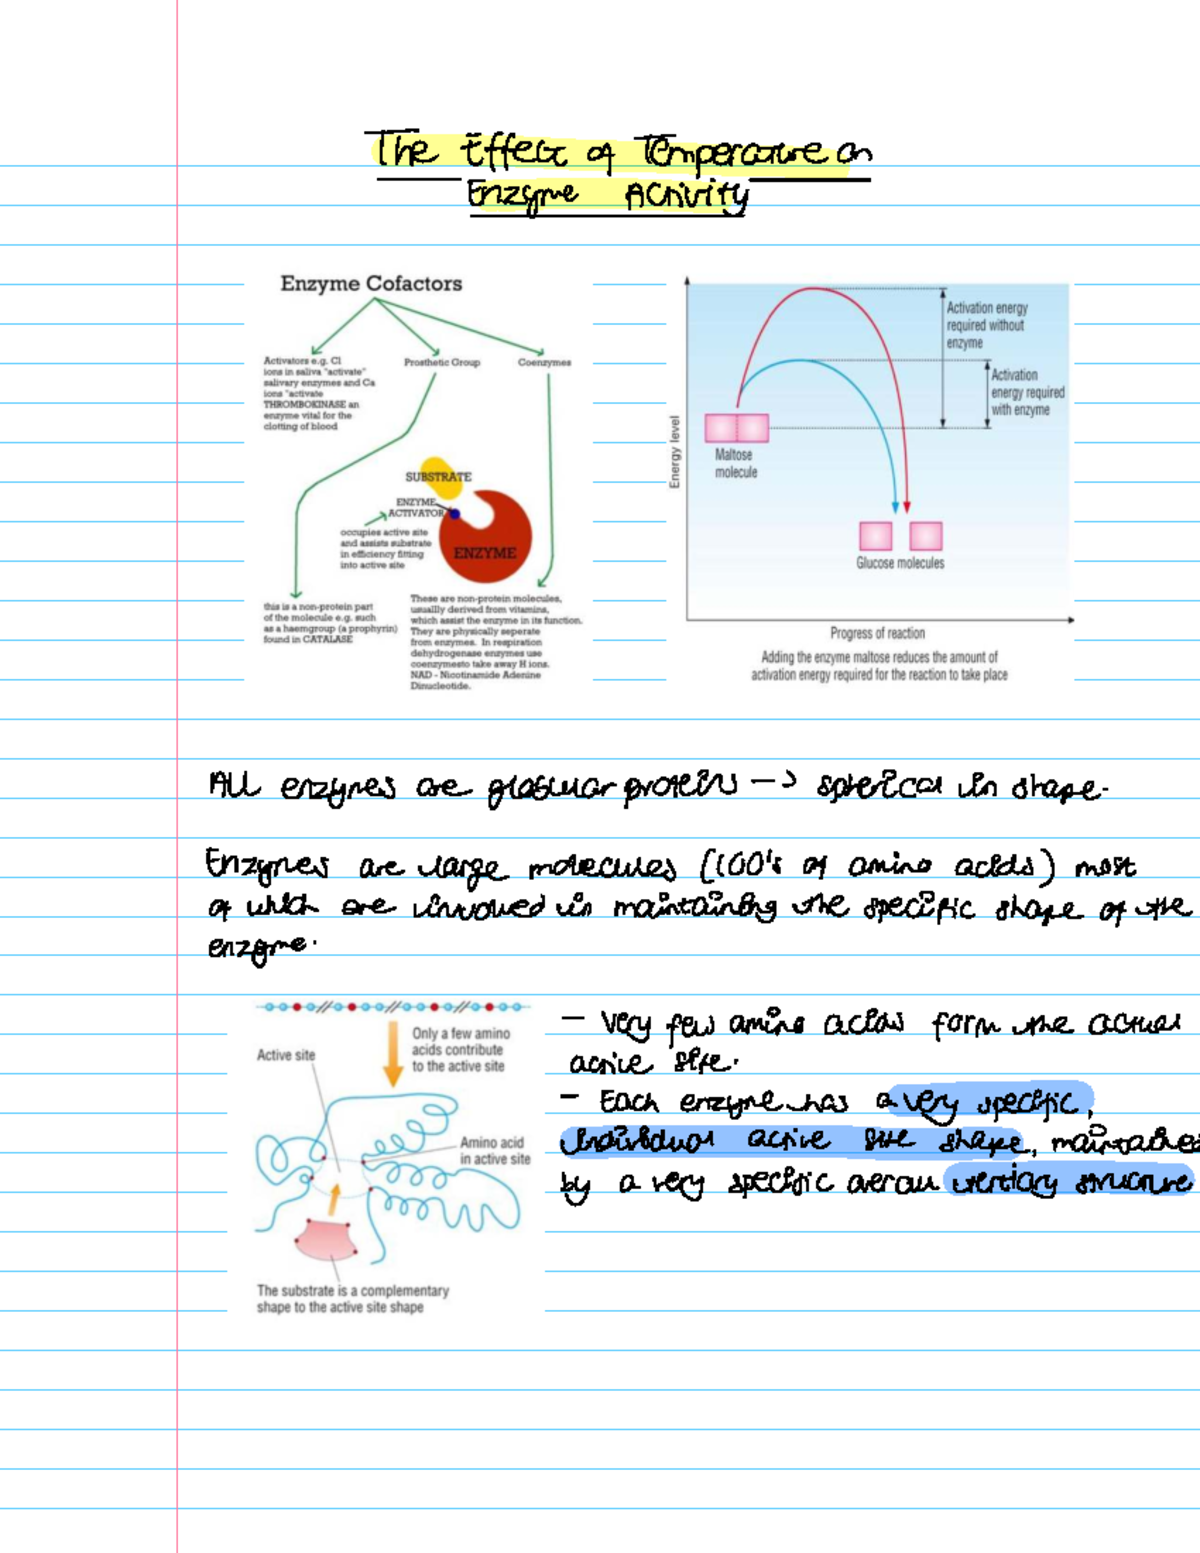 The Effect of Temperature on
Enzyme Activity
Enzyme Cofactors
Activators e.g. Cl
ions in saliva "activate"
salivary enzymes and Ca
ions "activate
THROMBOKINASE an
enzyme vital for the
clotting of blood
Prosthetic Group
Coenzymes
SUBSTRATE
ENZYME
ACTIVATOR
occupies active site
and assists substrate
in efficiency fitting
into active site
ENZYME
this is a non-protein part
of the molecule e.g. such
as a haemgroup (a prophyrin)
found in CATALASE
These are non-protein molecules,
usuallly derived from vitamins,
which assist the enzyme in its function.
They are physically seperate
from enzymes. In respiration
dehydrogenase enzymes use
coenzymesto take away H ions.
NAD - Nicotinamide Adenine
Dinucleotide.
Energy level
Activation energy
required without
enzyme
Activation
energy required
with enzyme
Maltose
molecule
Glucose molecules
Progress of reaction
Adding the enzyme maltose reduces the amount of
activation energy required for the reaction to take place
All enzymes are globular proteins -> spherical in shape.
Enzymes are large molecules (100's of amino acids) most
of which are involved in maintaining the specific shape of the
enzyme.
Only a few amino
acids contribute
to the active site
Active site
Amino acid
in active site
The substrate is a complementary
shape to the active site shape
- Very few amino acids form the actual
active site.
- Each enzyme has a very specific,
individual active site shape, maintained
by a very specific overall tertiary structure